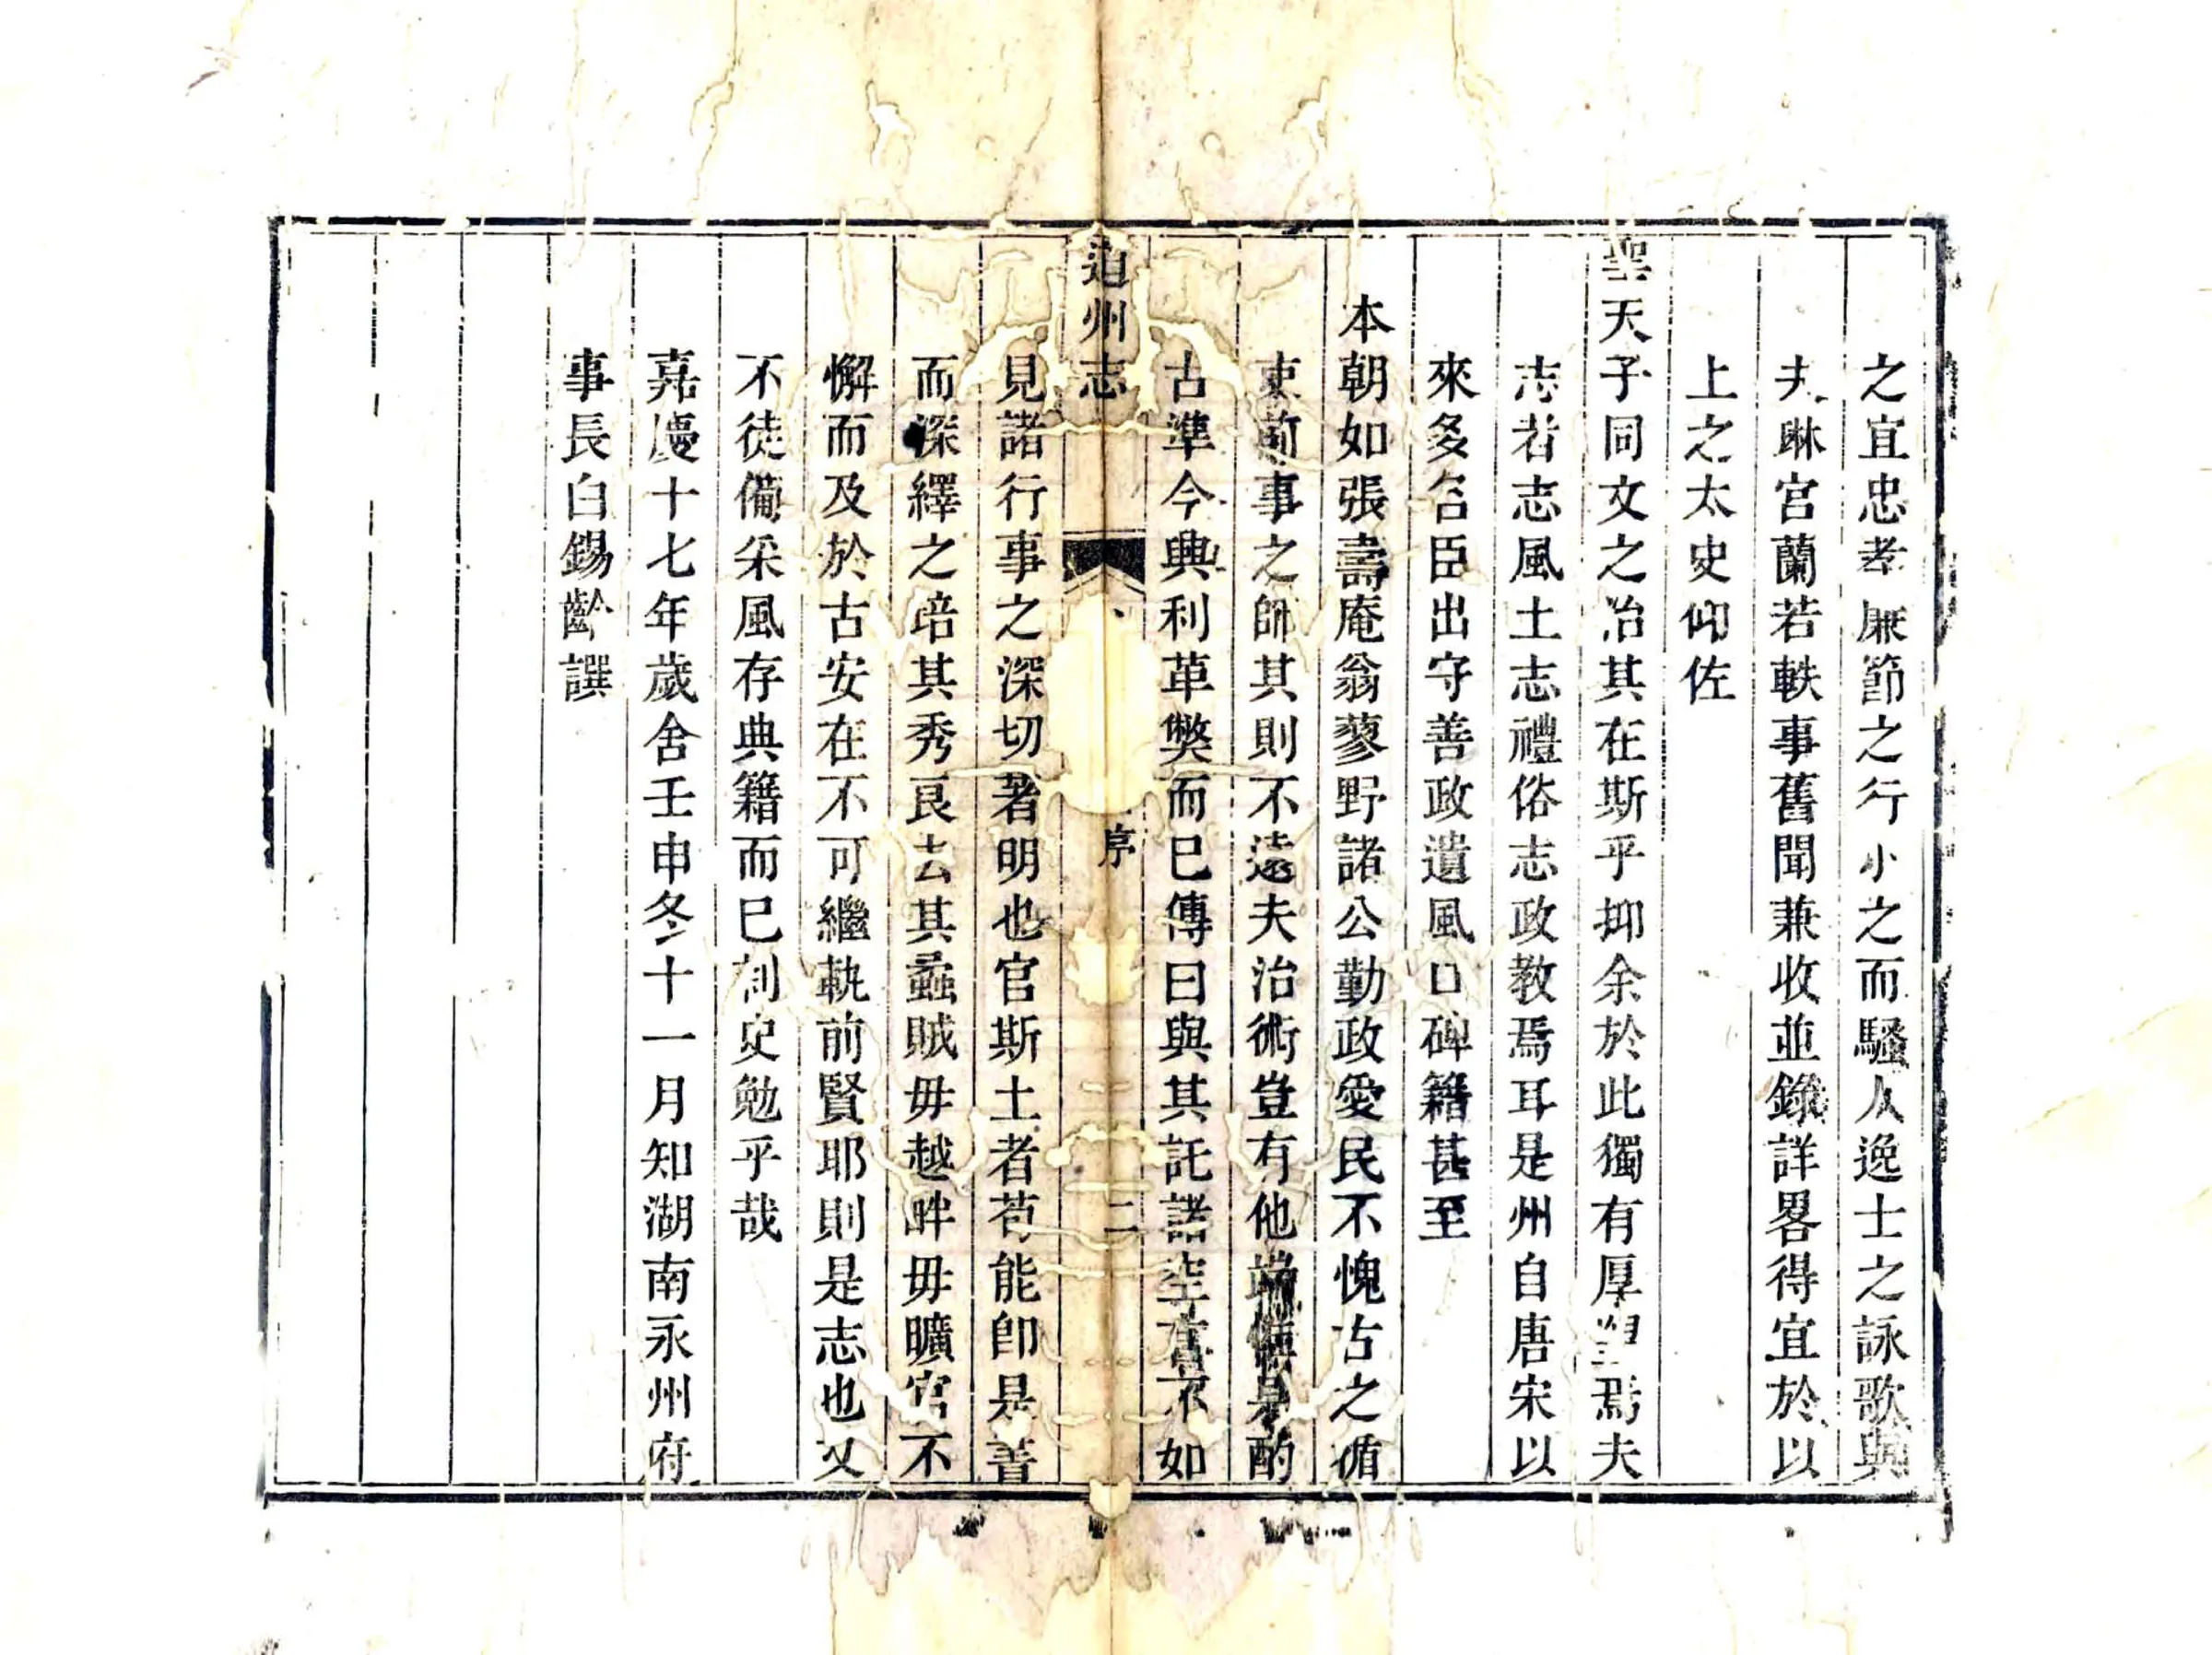 之宜忠孝廉節之行小之而騷人逸士之詠歌與
夫琳宮蘭若軼事舊聞兼收並錄詳畧得宜於以
上之太史仰佐
聖天子同文之治其在斯乎抑余於此獨有厚望焉夫
志者志風土志禮俗志政教焉耳是州自唐宋以
來多名臣出守善政遺風口碑籍甚至
本朝如張壽庵翁蓼野諸公勤政愛民不愧古之循
吏前事之師其則不遠夫治術豈有他端惟是酌
古準今興利革獘而已傳曰與其託諸空言不如
道州志
序
二
見諸行事之深切著明也官斯土者苟能卽是書
而深繹之培其秀良去其蟊賊毋越畔毋曠官不
懈而及於古安在不可繼軌前賢耶則是志也又
不徒備采風存典籍而已刺史勉乎哉
嘉慶十七年歲舍壬申冬十一月知湖南永州府
事長白錫齡譔